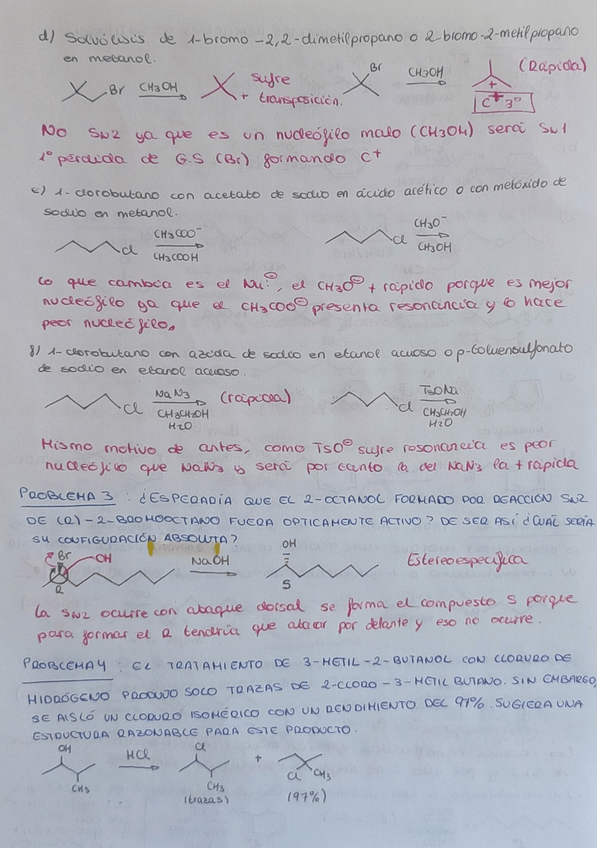 d) Solvólisis de 1-bromo-2,2-dimetilpropano o 2-bromo-2-metilpropano
en metanol.
Br CH3OH + sufre transposición. Br CH3OH + (Rápida)
C+ 3º
No SN2 ya que es un nucleófilo malo (CH3OH) será SN1
1º pérdida de G.S (Br) formando C+
e) 1-clorobutano con acetato de sodio en ácido acético o con metóxido de
sodio en metanol.
Cl CH3COO- CH3COOH Cl CH3O- CH3OH
Lo que cambia es el Nu:⊖, el CH3O⊖ + rápido porque es mejor
nucleófilo ya que el CH3COO⊖ presenta resonancia y lo hace
peor nucleófilo.
f) 1-clorobutano con azida de sodio en etanol acuoso o p-toluensulfonato
de sodio en etanol acuoso.
Cl NaN3 CH3CH2OH H2O (rápida) Cl TsONa CH3CH2OH H2O
Mismo motivo de antes, como TsO⊖ sufre resonancia es peor
nucleófilo que NaN3 y será por tanto la del NaN3 la + rápida
PROBLEMA 3: ¿ESPERARÍA QUE EL 2-OCTANOL FORMADO POR REACCIÓN SN2
DE (R)-2-BROMOOCTANO FUERA OPTICAMENTE ACTIVO? DE SER ASÍ ¿CUÁL SERÍA
SU CONFIGURACIÓN ABSOLUTA?
Br OH R NaOH OH S Estereoespecífica
La SN2 ocurre con ataque dorsal se forma el compuesto S porque
para formar el R tendría que atacar por delante y eso no ocurre.
PROBLEMA 4: EL TRATAMIENTO DE 3-METIL-2-BUTANOL CON CLORURO DE
HIDRÓGENO PRODUJO SOLO TRAZAS DE 2-CLORO-3-METIL BUTANO. SIN EMBARGO,
SE AISLÓ UN CLORURO ISOMÉRICO CON UN RENDIMIENTO DEL 97%. SUGIERA UNA
ESTRUCTURA RAZONABLE PARA ESTE PRODUCTO.
OH CH3 HCl Cl CH3 (trazas) + Cl CH3 (97%)